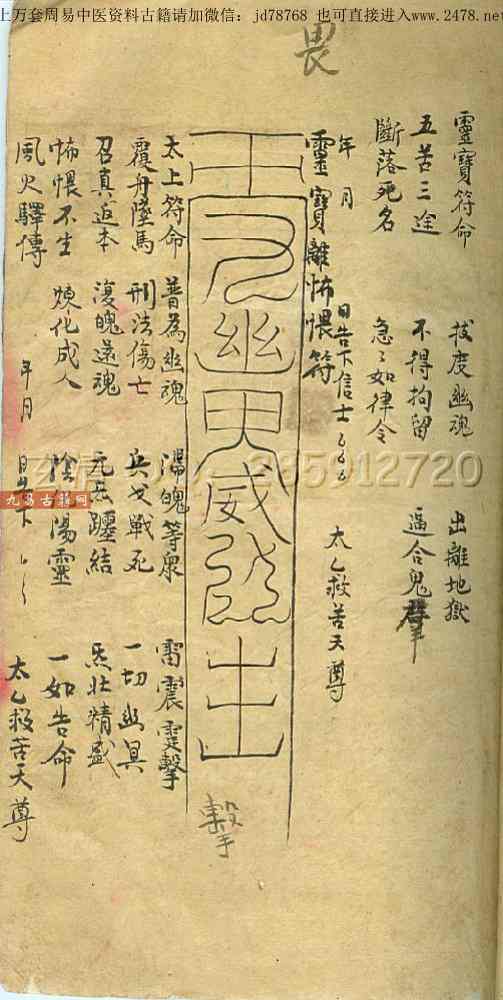 上万套周易中医资料古籍请加微信：jd78768 也可直接进入www.2478.ne
畏
靈寶符命 拔度幽魂 出離地獄
五苦三途 不得拘留 逼合鬼群
斷落死名 急々如律令
年 月 日告下信士 太乙救苦天尊
靈寶離怖畏符
擊
太上符命 普為幽魂 滯魄等衆 雷震霆擊
覆舟墜馬 刑法傷亡 兵戈戰死 一切幽冥
召真返本 復魄還魂 元 躔結 炁壯精盛
怖愄不生 煉化成人 陰 陽靈 一如告命
風火驛傳 年 月 日告下 太乙救苦天尊
265912720
九易古籍网